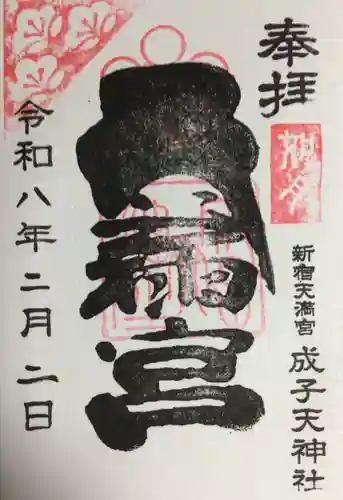 奉拝
新宿天満宮 成子天神社
天満宮
令和八年二月二日